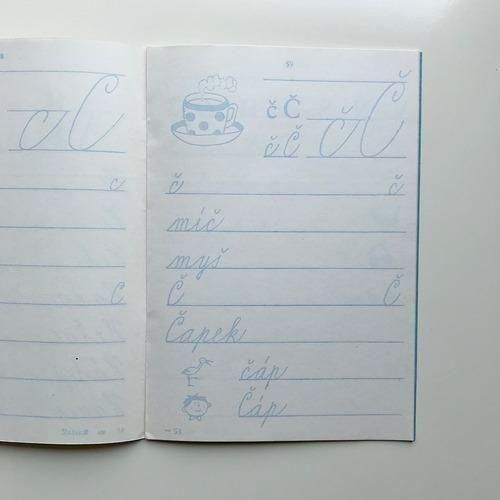 c C
c
C
č Č
č Č
č Č
č č
míč
myš
Č Č
Čapek
čáp
Čáp